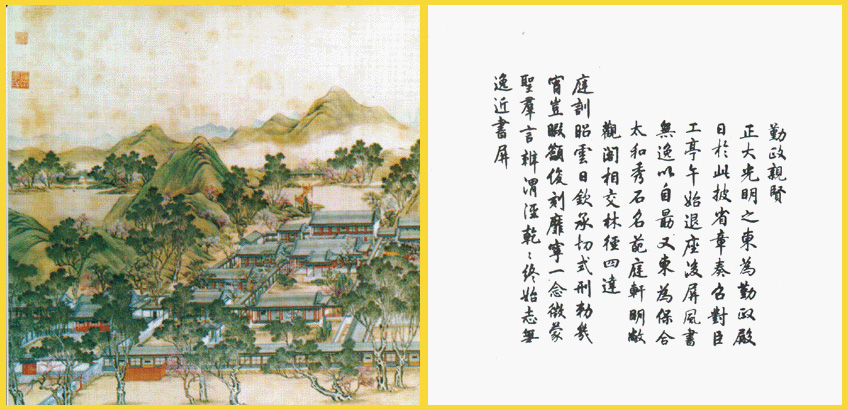 勤政親賢
正大光明之東為勤政殿
日於此披省章奏召對臣
工亭午始退座後屏風書
無逸以自勗又東為保合
太和秀石名葩庭軒明敞
觀閣相交林徑四達
庭訓昭雲日欽承切式刑勅幾
宵豈暇籲俊刻靡寧一念微蒙
聖羣言辨渭涇乾〻終始志無
逸近書屏